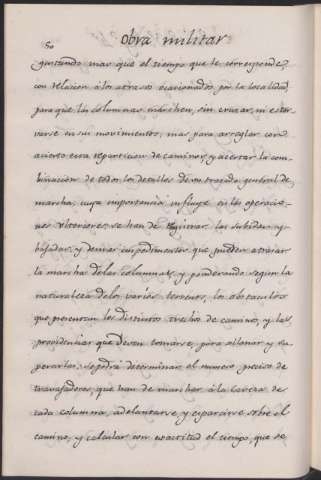 50
Obra militar
gastando mas que el tiempo que le corresponde,
con relacion á los atrasos ocacionados por la localidad,
para que las columnas marchen, sin cruzar, ni estor-
varse en sus movimientos; mas para arreglar con
acierto esta reparticion de caminos, y acertar la com-
binacion de todos los detalles de un trazado general de
marcha, cuya importancia influye en las operacio-
nes ulteriores, se han de registrar las subidas, y
bajadas, y demas impedimentos que pueden atrasar
la marcha de las columnas, y ponderando segun la
naturaleza de los varios terrenos, los obstaculos
que presentan los distintos trechos de camino, y las
providencias que deven tomarse, para allanar y su-
perarlos, se podrá determinar el numero preciso de
travajadores, que han de marchar á la caveza de
cada columna, adelantarse y esparcirse sobre el
camino, y calcular con exactitud el tiempo, que se